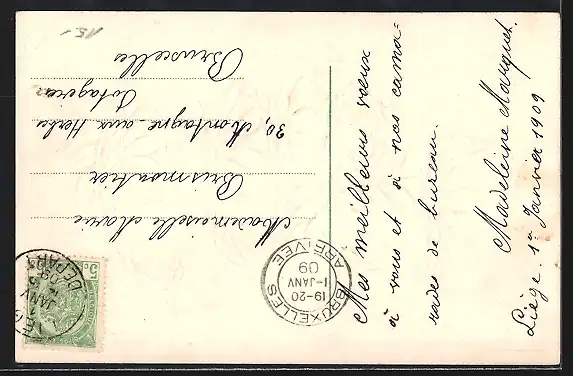 Mademoiselle Marie
Brismontier
30, Montagne aux Herbes
Potagères
Bruxelles
Mes meilleurs vœux
à vous et à nos cama=
rades de bureau.
Madeleine Marquet.
Liège. 1r Janvier 1909
BRUXELLES
19-20
1-JANV
09
ARRIVEE
JANV
DEPART
5c
15.-